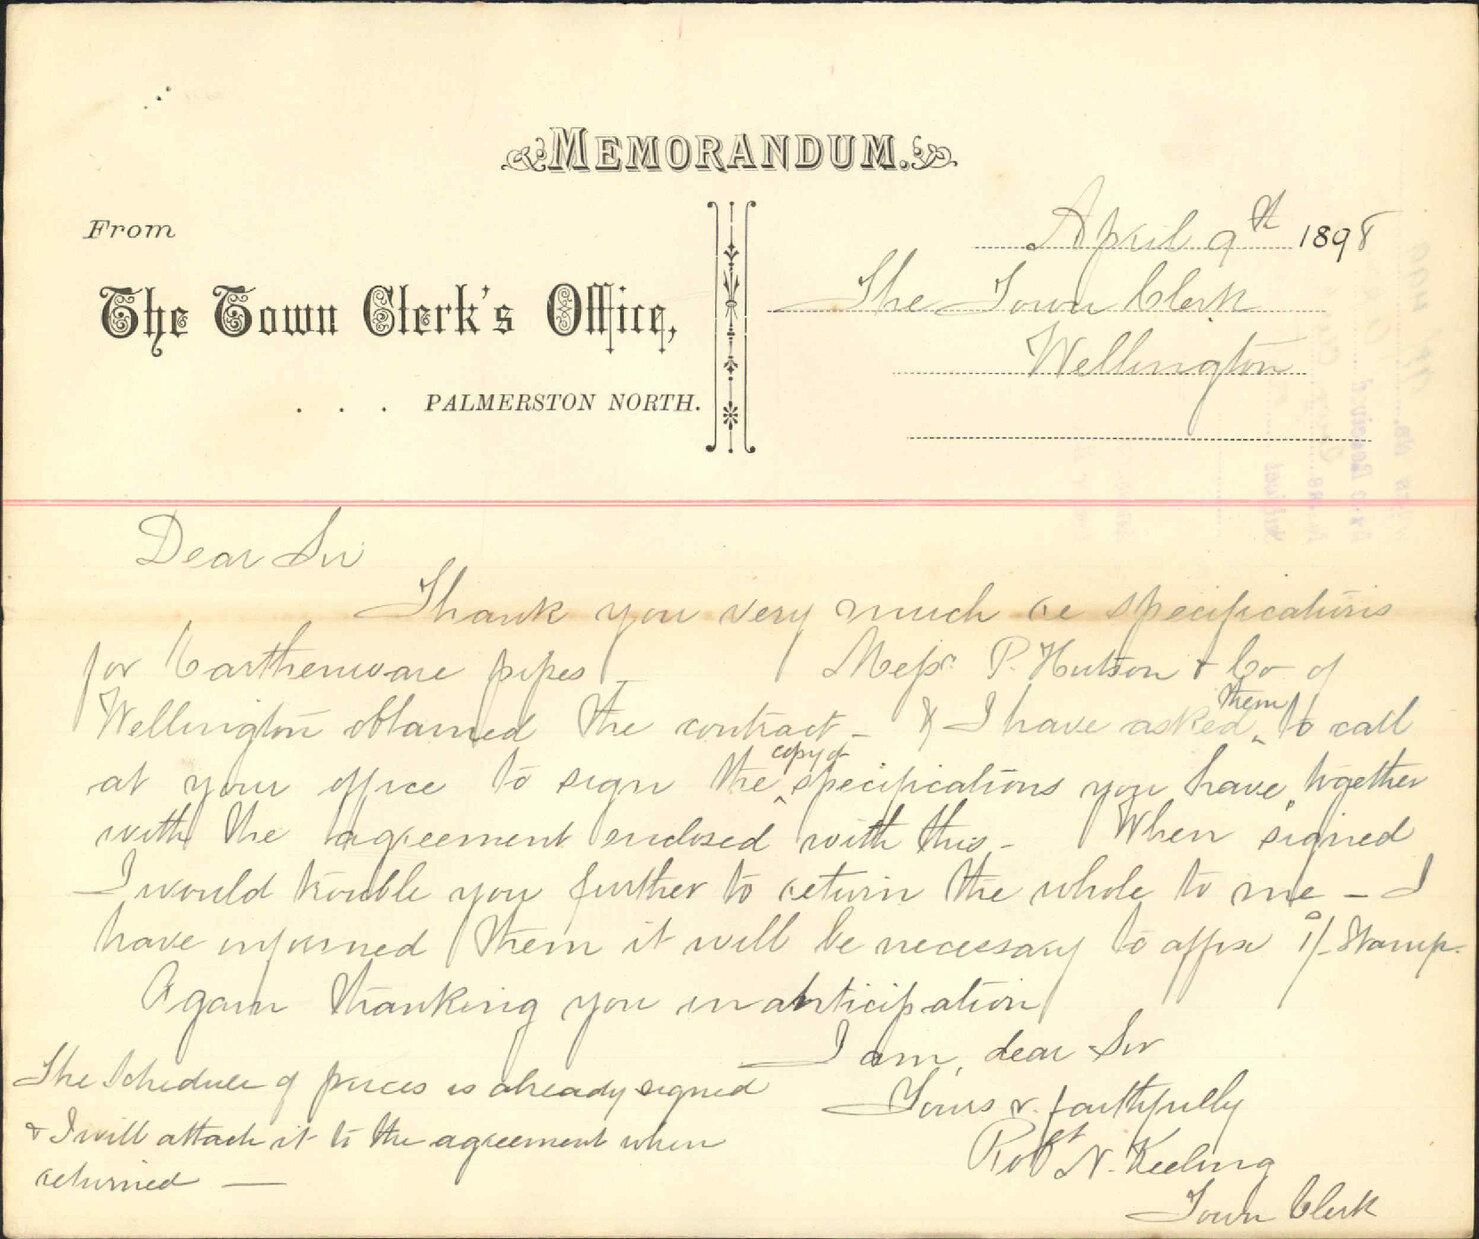 MEMORANDUM.
From
The Town Clerk's Office,
. . . PALMERSTON NORTH.
April 9th 1898
The Town Clerk
Wellington
Dear Sir
Thank you very much re specifications
for Earthenware pipes – Messrs. P. Hutson & Co of
Wellington obtained the contract – & I have asked them to call
at your office to sign the copy of specifications you have, together
with the agreement enclosed with this – When signed
I would trouble you further to return the whole to me – I
have informed them it will be necessary to affix 1/- Stamp.
Again thanking you in anticipation
I am, dear Sir
Yours v. faithfully
Robt N. Keeling
Town Clerk
The Schedule of prices is already signed
& I will attach it to the agreement when
returned —